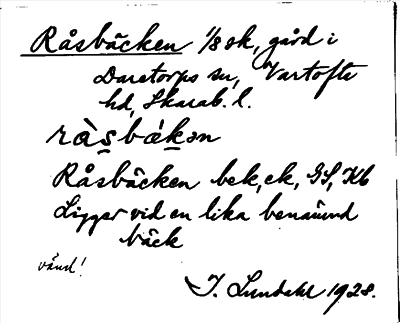 Råsbäcken 1/8 sk, gård i
Daretorps sn, Vartofta
hd, Skarab. l.
ràsbákən
Råsbäcken bek, ek, GS, Kb
Ligger vid en lika benämnd
bäck
vänd!
I. Lundahl 1928.